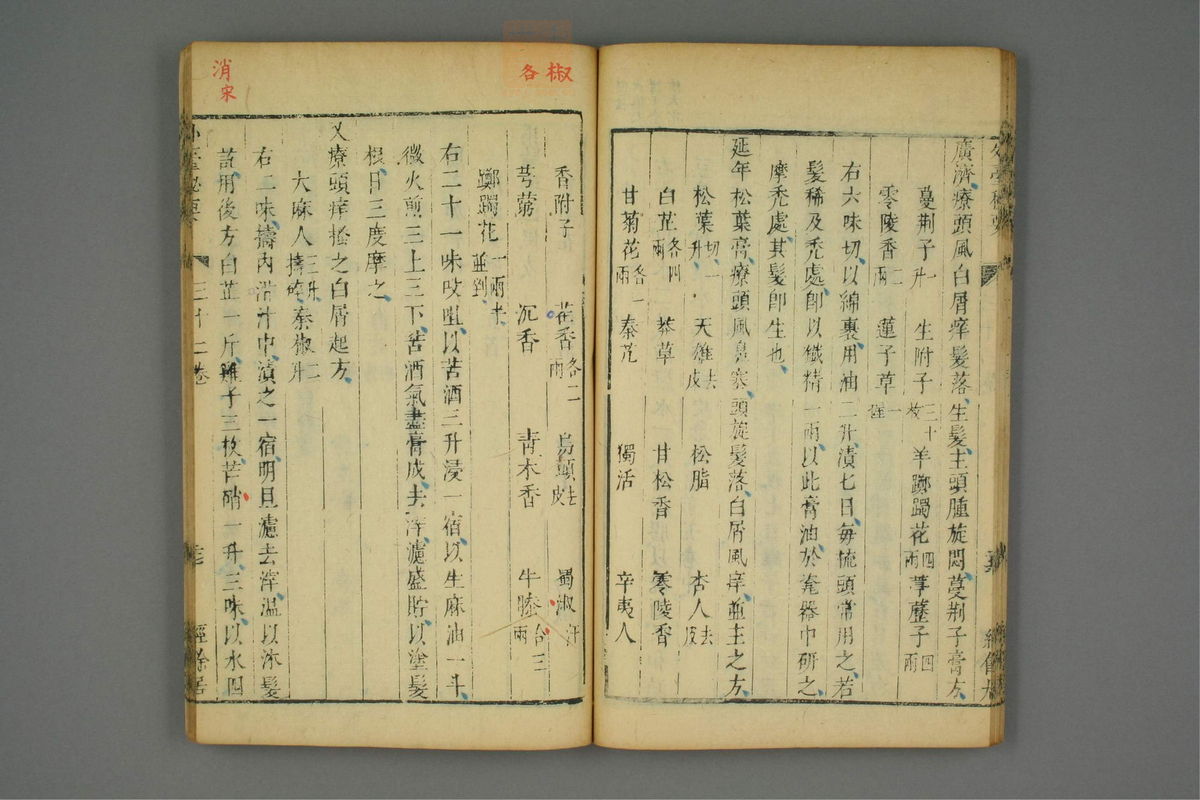 廣濟療頭風白屑痒髮落生髮主頭腫旋悶蔓荆子膏方
蔓荆子一升 生附子三十枚 羊躑躅花四兩 葶藶子四兩
零陵香二兩 蓮子草一握
右六味切以綿裹用油二升漬七日每梳頭常用之若
髮稀及禿處即以鐵精一兩以此膏油於瓷器中研之
摩禿處其髮即生也
延年松葉膏療頭風鼻塞頭旋髮落白屑風痒並主之方
松葉切一升 天雄去皮 松脂 杏人去皮
白芷各四兩 莽草 甘松香 零陵香
甘菊花各一兩 秦艽 獨活 辛夷人
香附子 藿香各二兩 烏頭去皮 蜀淑汗
芎藭 沉香 青木香 牛膝各三兩
躑躅花一兩半並剉
右二十一味㕮咀以苦酒三升浸一宿以生麻油一斗
微火煎三上三下苦酒氣盡膏成去滓濾盛貯以塗髮
根日三度摩之
又療頭痒搔之白屑起方
大麻人三升擣碎 秦椒二升
右二味擣內泔汁中漬之一宿明旦濾去滓溫以沐髮
訖用後方白芷一斤雞子三枚芒硝一升三味以水四
外臺秘要
三十二卷
經餘居
椒
各
消
宋